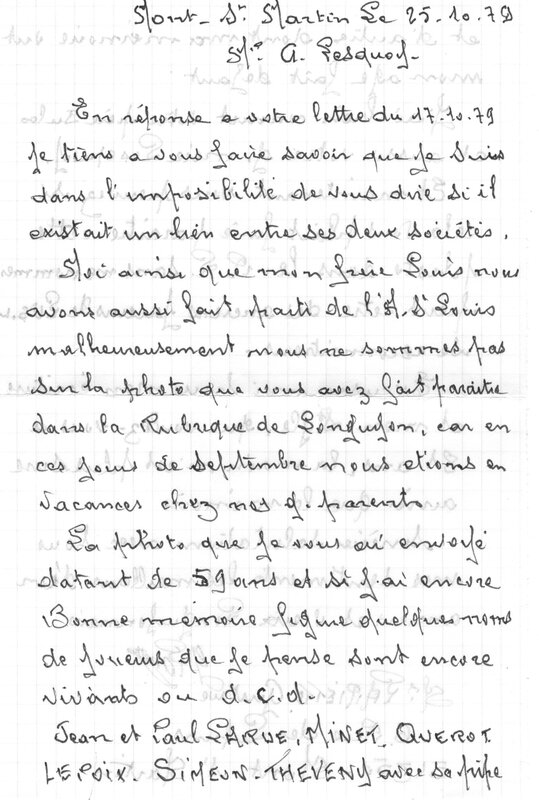 Mont-St Martin Le 25.10.79
Mr. A. Lesquoy.
En réponse a votre lettre du 17.10.79
je tiens a vous faire savoir que je suis
dans l'imposibilité de vous dire si il
existait un lien entre ses deux sociétés.
Moi ainsi que mon frère Louis nous
avons aussi fait parti de l'H. St Louis
malheureusement nous ne sommes pas
sur la photo que vous avez fait paraitre
dans la Rubrique de Longuyon, car en
ces jours de septembre nous etions en
vacances chez nos g. parents
La photo que je vous ai envoyé
datant de 59 ans et si j'ai encore
Bonne memoire figure quelques noms
de joueurs que je pense sont encore
vivants ou d.c.d.
Jean et Paul LARUE, MINET, QUEROT
LEPOIX. SIMEON-THEVENY avec sa pipe